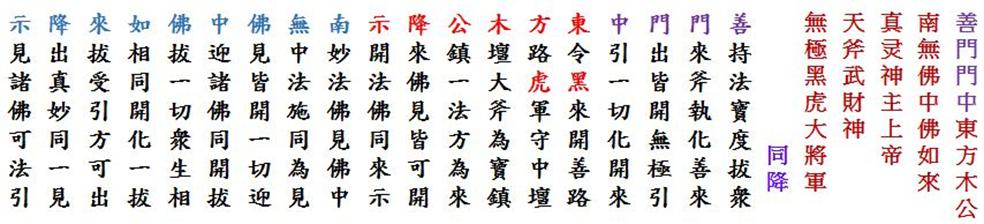 善門門中東方木公
南無佛中佛如來
真灵神主上帝
天斧武財神
無極黑虎大將軍
同降
善持法寶度拔衆
門來斧執化善來
門出皆開無極引
中引一切化開來
東令黑來開善路
方路虎軍守中壇
木壇大斧為寶鎮
公鎮一法方為來
降來佛見皆可開
示開法佛同來示
南妙法佛見佛中
無中法施同為見
佛見皆開一切迎
中迎諸佛同開拔
佛拔一切衆生相
如相同開化一拔
來拔受引方可出
降出真妙同一見
示見諸佛可法引